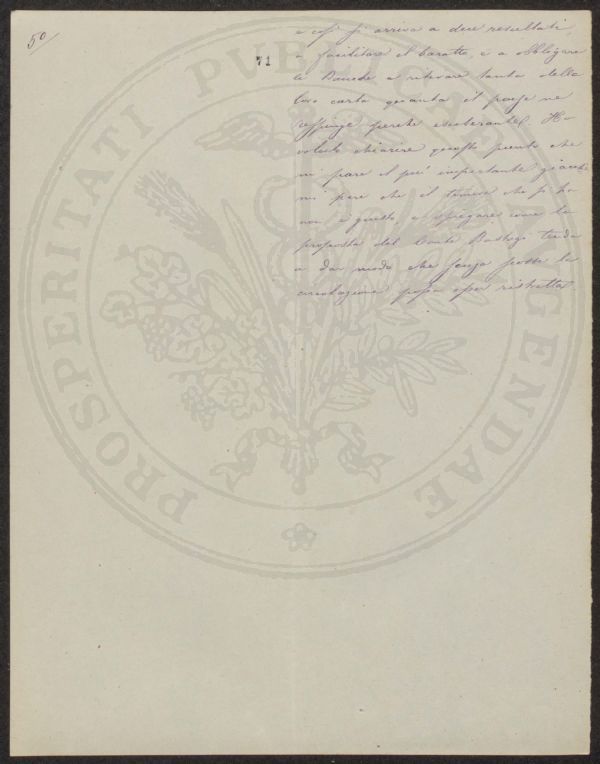 50
71
e così si arriva a due resultati,
a facilitare il baratto, e a obbligare
le Banche a ritirare tanta della
loro carta quanta il paese ne
respinge perché esuberante. Ho
voluto chiarire questo punto che
mi pare il più importante giacché
mi pare che il timore che si ha
non è questo, e spiegare come la
proposta del Conte Bastogi tenda
a dar modo che senza scosse la
circolazione possa esser ristretta.
PROSPERITATI PUBLICAE AUGENDAE